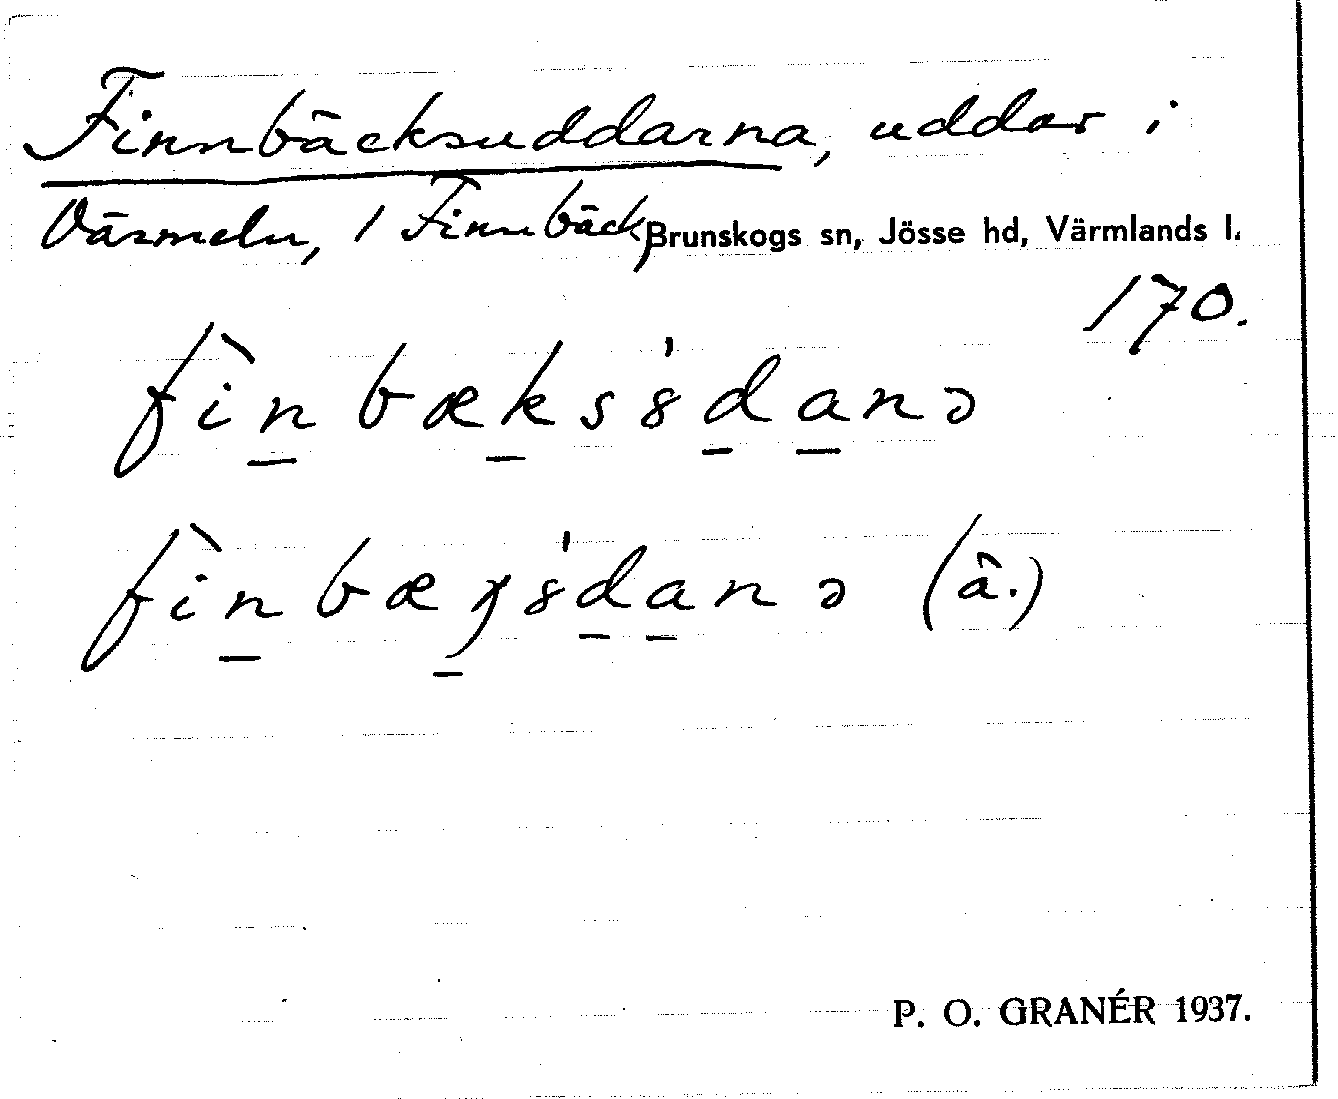 Finnbäcksuddarna, uddar i
Värmeln, / Finnbäck, Brunskogs sn, Jösse hd, Värmlands l.
170.
fìn bæks8́danə
fìn bæŋ8́danə (â.)
P. O. GRANÉR 1937.